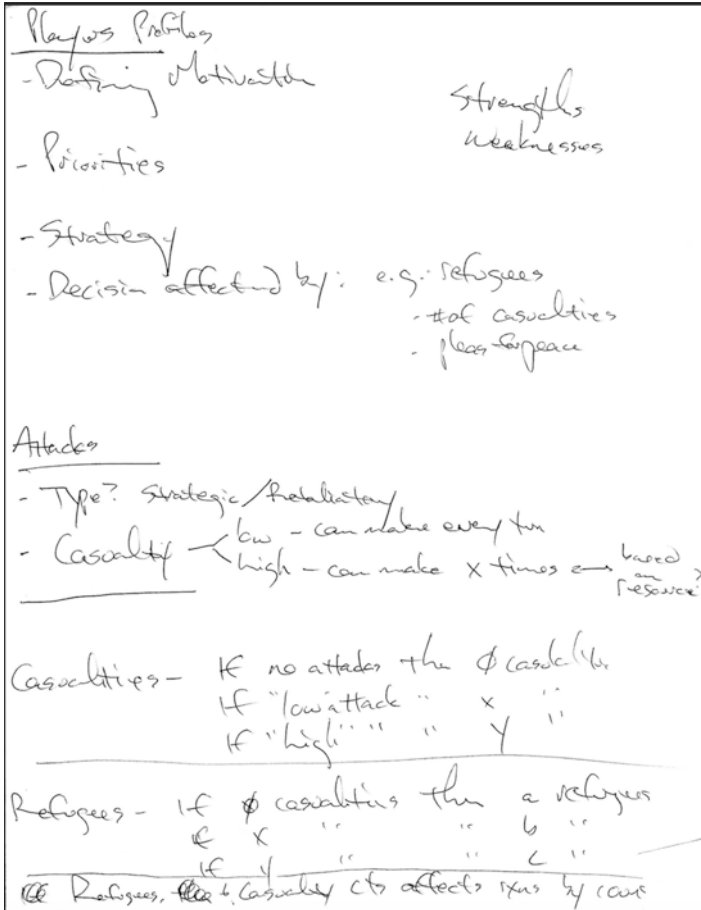 Players Profiles
- Defining Motivation
Strengths
Weaknesses
- Priorities
- Strategy
- Decision affected by: e.g.: refugees
. # of casualties
. pleas for peace
Attacks
- Type? Strategic/Retaliatory
- Casualty < low - can make every turn
high - can make x times ← based on resource?
Casualties - If no attacks then ∅ casualties
If "low" attack " x "
If "high" " " y "
Refugees - if ∅ casualties then a refugees
if x " " b "
if y " " c "
Refugees, Casualty cts affects by